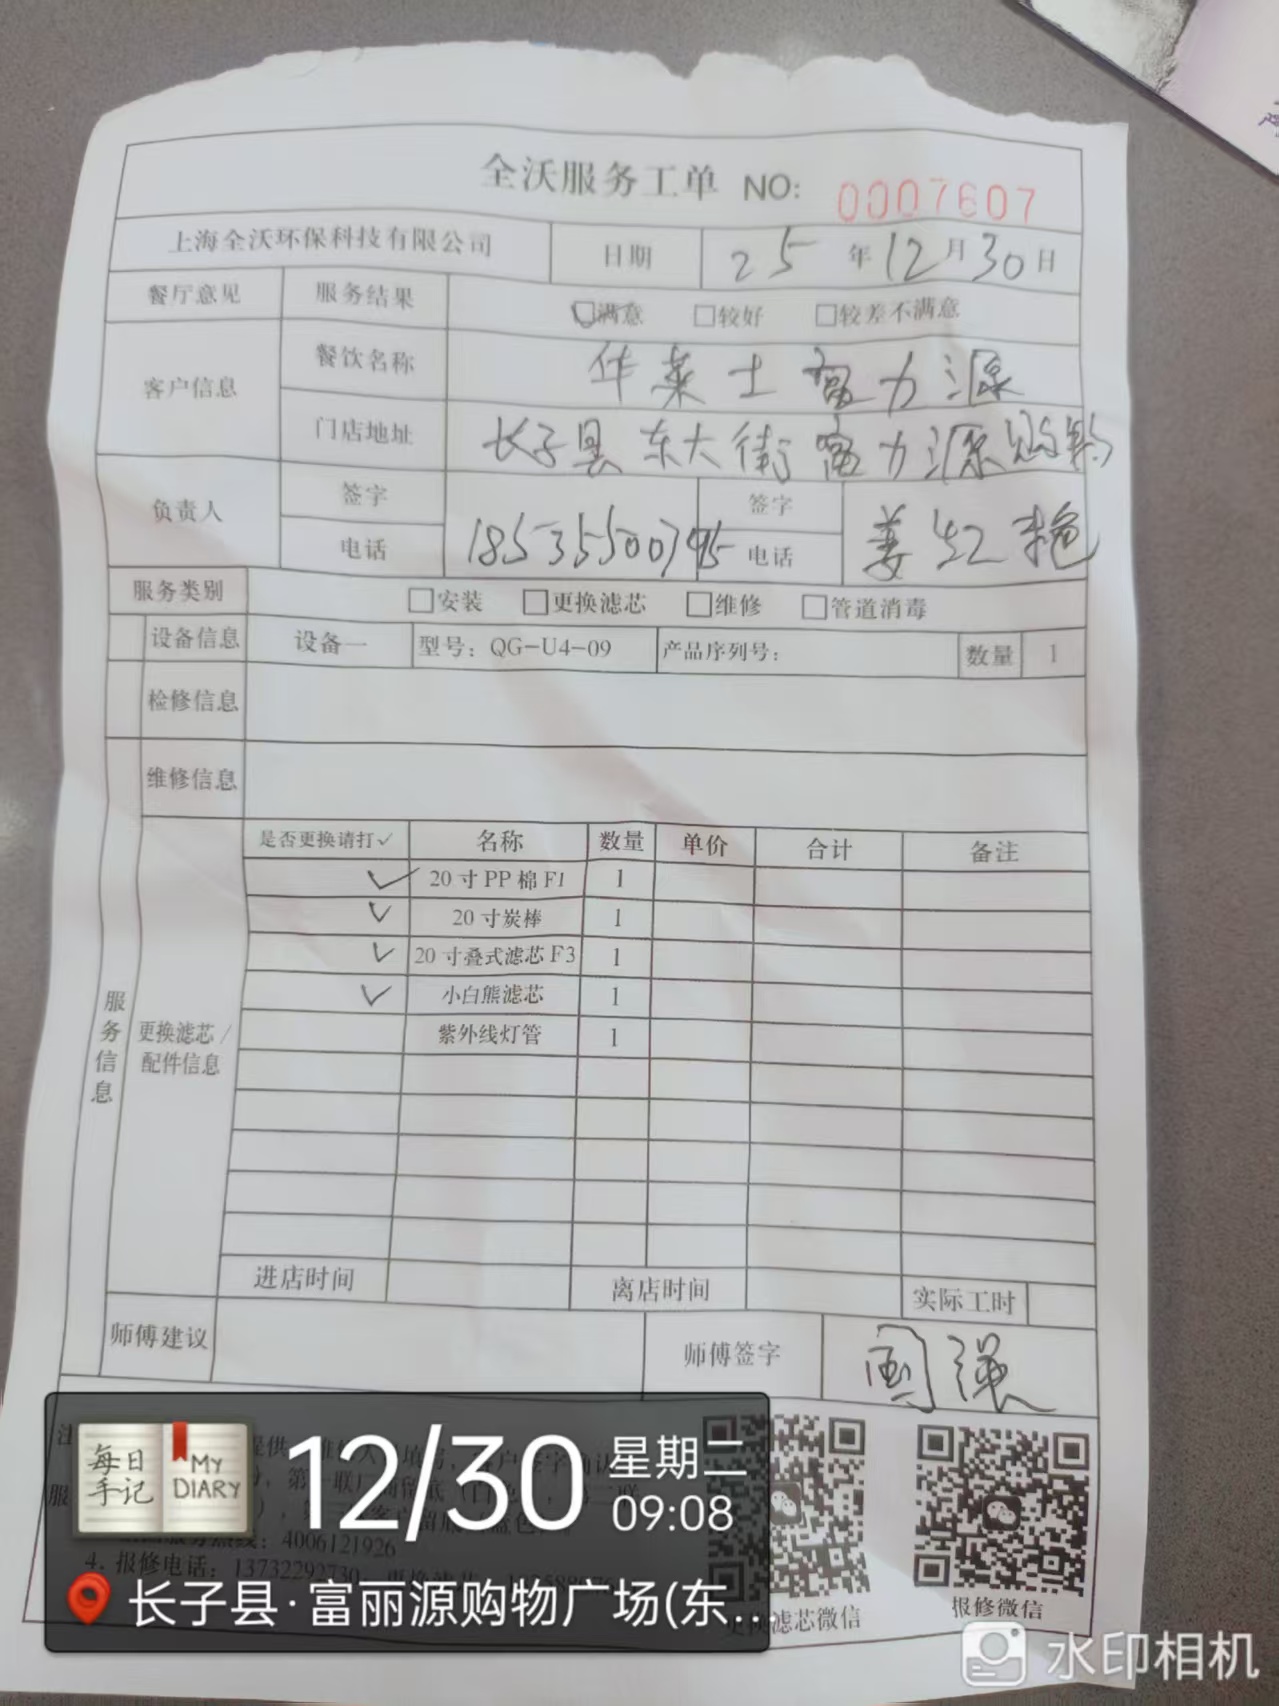 全沃服务工单 NO: 0007607
上海全沃环保科技有限公司 日期 25年12月30日
餐厅意见 服务结果 满意 较好 较差不满意
客户信息 餐饮名称 华莱士富力源
门店地址 长子县东大街富力源购物
负责人 签字 签字 姜红艳
电话 18535500795 电话
服务类别 安装 更换滤芯 维修 管道消毒
设备信息 设备一 型号：QG-U4-09 产品序列号： 数量 1
检修信息
维修信息
服务信息
更换滤芯/配件信息
是否更换请打✓ 名称 数量 单价 合计 备注
✓ 20寸PP棉F1 1
✓ 20寸炭棒 1
✓ 20寸叠式滤芯F3 1
✓ 小白熊滤芯 1
紫外线灯管 1
进店时间 离店时间 实际工时
师傅建议 师傅签字 国强
4006121926
4. 报修电话：13732292730
更换滤芯微信 报修微信
每日手记 MY DIARY
12/30 星期二 09:08
长子县·富丽源购物广场(东...
水印相机